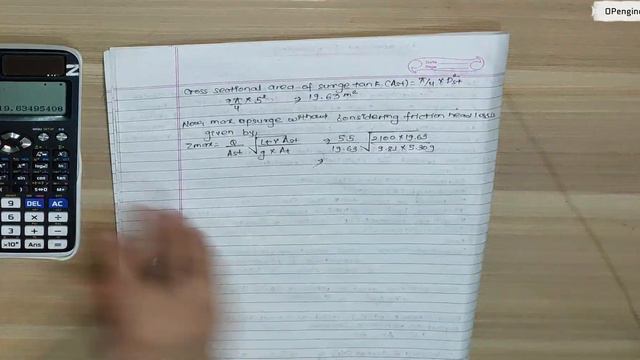 OPengine
19.63495408
Cross sectional area of surge tank (Ast) = π/4 × D²st
⇒ π/4 × 5² ⇒ 19.63 m²
Now, max upsurge without considering friction head loss is
given by,
Zmax = Q/Ast √(Lt × Ast / g × At) ⇒ 5.5/19.63 √(2100 × 19.63 / 9.81 × 5.309)
⇒
9 DEL AC
6 × ÷
3 + −
×10ˣ Ans =
S⇔D M+